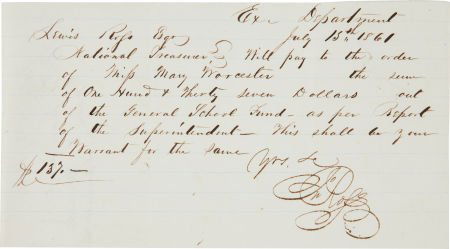 Ex. Department
July 15th 1861
Lewis Ross Esqr
National Treasurer, Will pay to the order
of Miss Mary Worcester the sum
of One Hund & thirty seven Dollars out
of the General School Fund - as per Report
of the Superintendent - This shall be your
Warrant for the same
$137.- Yrs. &c
Jn Ross